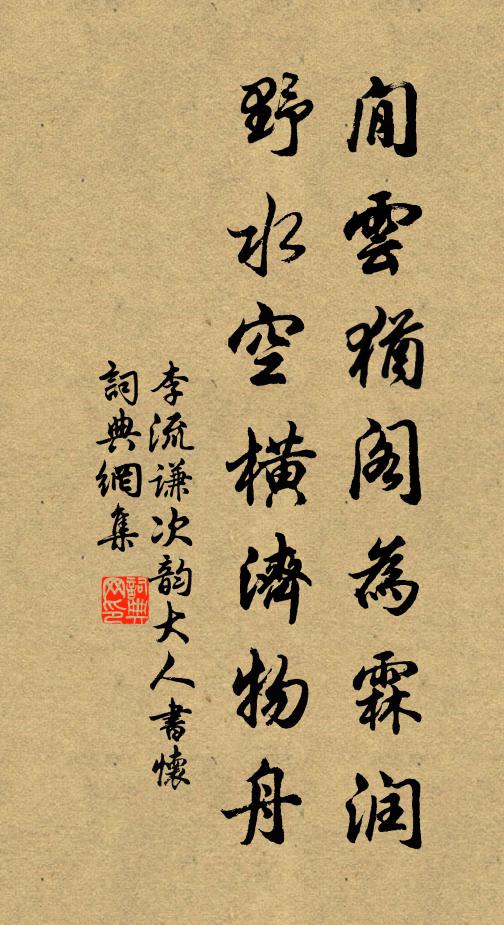 閒雲猶閣為霖润
野水空橫濟物舟
李流謙次韵大人書懷
詞典網集
詞典网印